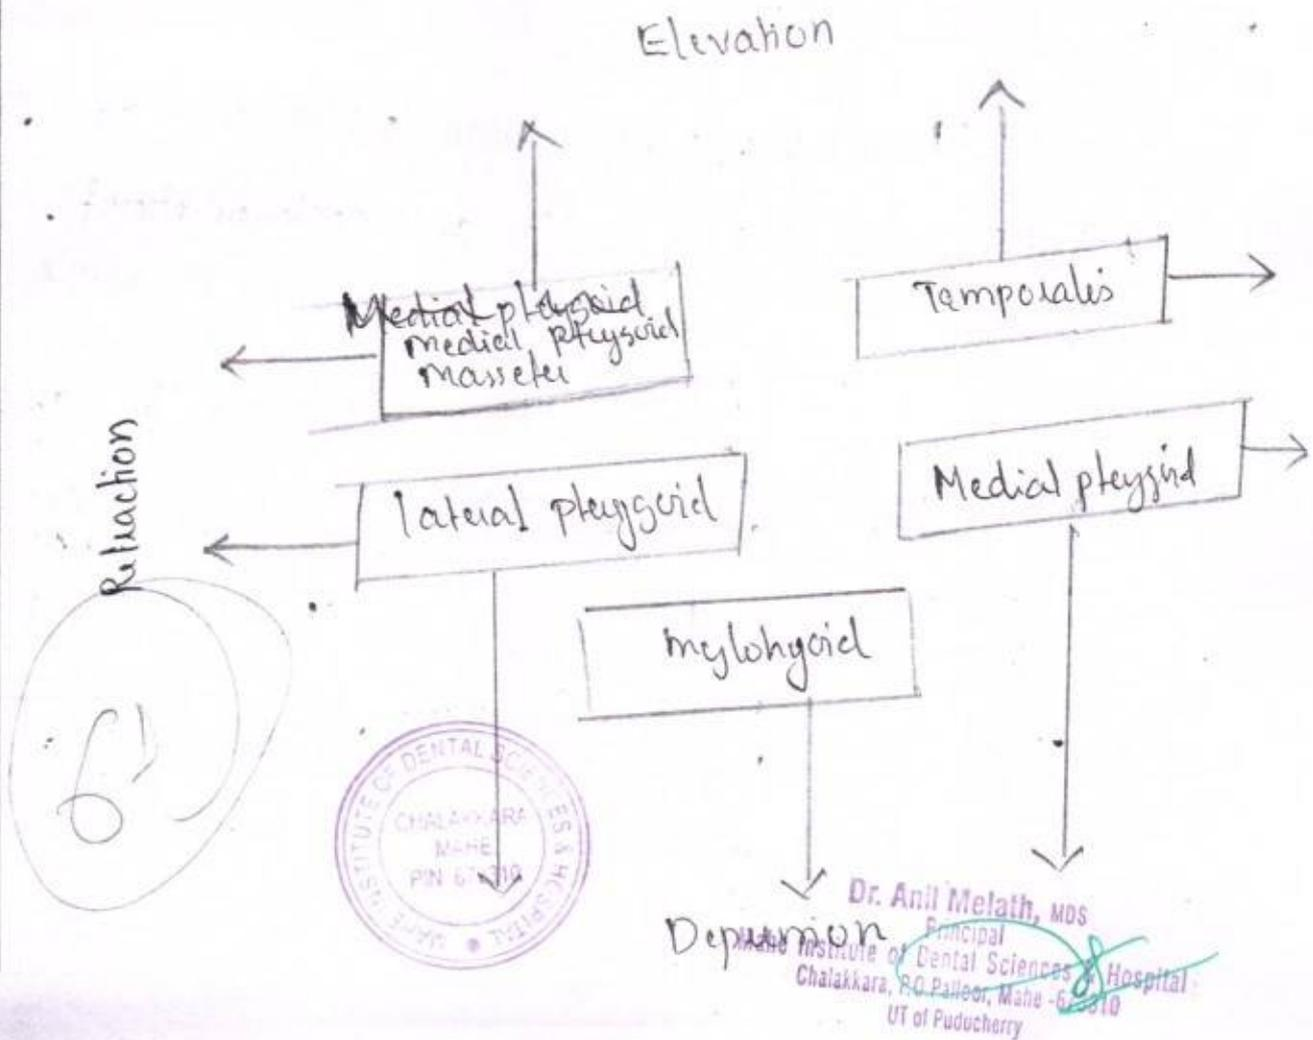 Elevation
Medial pteygoid
Medial pteygoid
Masseter
Temporalis
Retraction
lateral pteygoid
Medial pteygoid
mylohyoid
MAHE INSTITUTE OF DENTAL SCIENCES & HOSPITAL
CHALAKKARA
MAHE
PIN 673310
Depression
Dr. Anil Melath, MDS
Principal
Mahe Institute of Dental Sciences & Hospital
Chalakkara, P.O.Palloor, Mahe -673310
UT of Puducherry